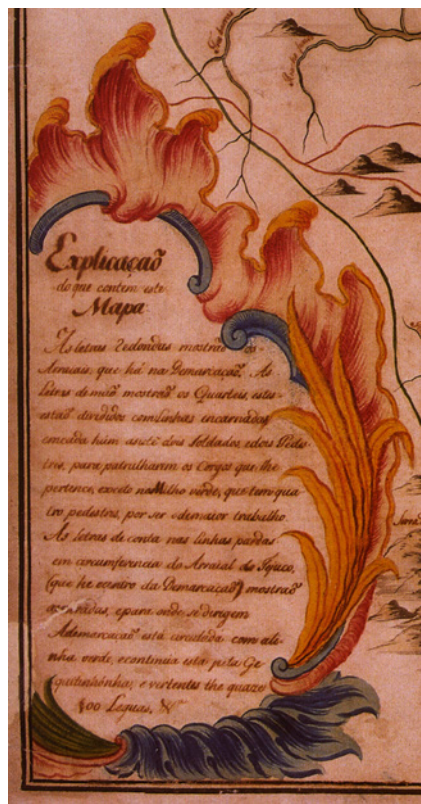 Explicaçaõ
do que contem este
Mapa
As letras redondas mostraõ os
Arraiais, que há na Demarcaçaõ. As
letras de maõ mostraõ os Quarteis, estes
estaõ divididos com linhas encarnadas,
emcada hum dois Soldados, edois Pedes-
tres, para patrulharem os Corgos que lhe
pertence, exceto no Milho verde, que tem qua
tro pedestres, por ser odemaior trabalho.
As letras de conta nas linhas pardas
em circumferencia do Arraial do Tejuco,
(que he ocentro da Demarcaçaõ) mostraõ
as estradas, epara onde se dirigem
Ademarcaçaõ está circulada com ali-
nha verde, econtinúa esta pelo Ge
quitinhônha, e vertentes the quaze
100 Leguas, &ª